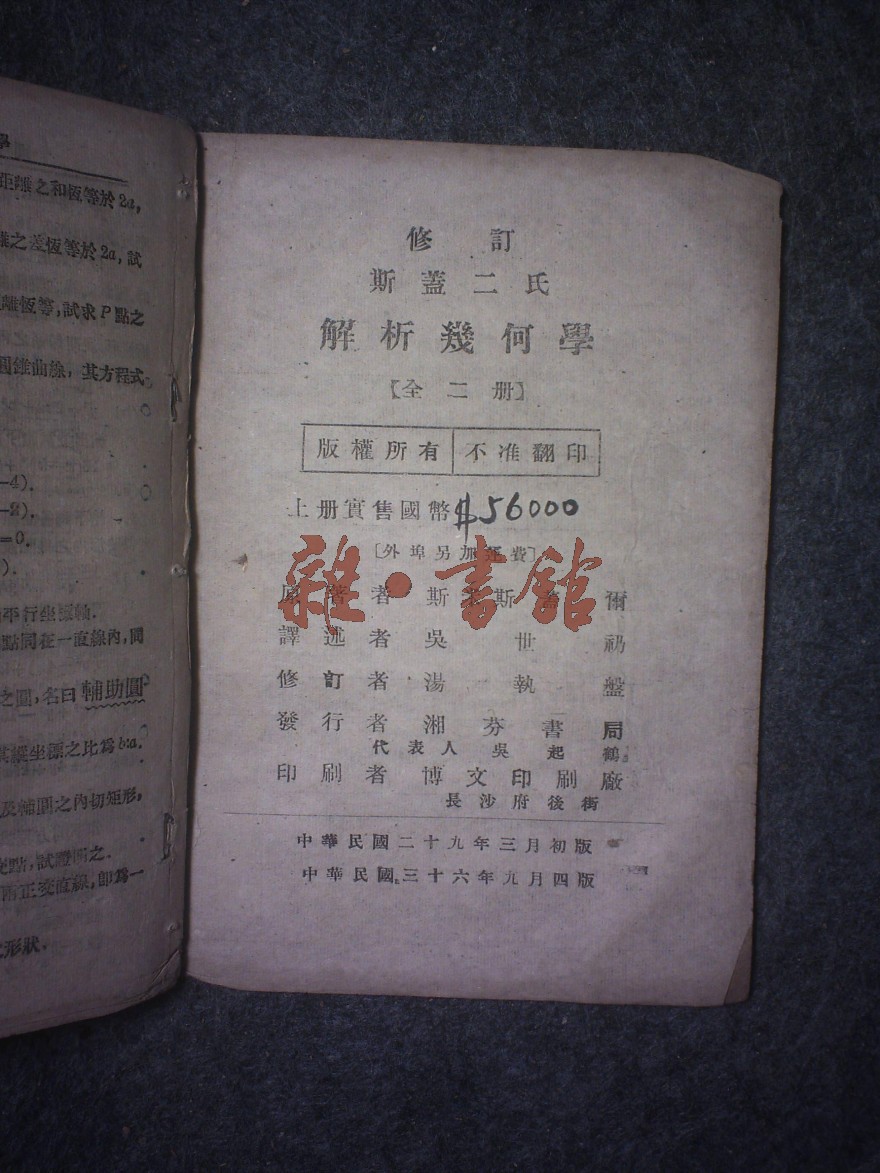 學
距離之和恆等於2a,
離之差恆等於2a, 試
離恆等, 試求P點之
圓錐曲線, 其方程式
-4).
-2).
=0.
).
平行坐標軸.
點同在一直線內, 問
之圓, 名曰輔助圓
其縱坐標之比為b:a.
及輔圓之內切矩形,
交點, 試證明之.
兩正交直線, 即為一
形狀.
修訂
斯蓋二氏
解析幾何學
【全二册】
版權所有 不准翻印
上册實售國幣$56000
[外埠另加運費]
原著者 斯 斯蓋爾
譯述者 吳世礽
修訂者 湯執盤
發行者 湘芬書局
代表人 吳起鶴
印刷者 博文印刷廠
長沙府後街
中華民國二十九年三月初版
中華民國三十六年九月四版
雜·書館